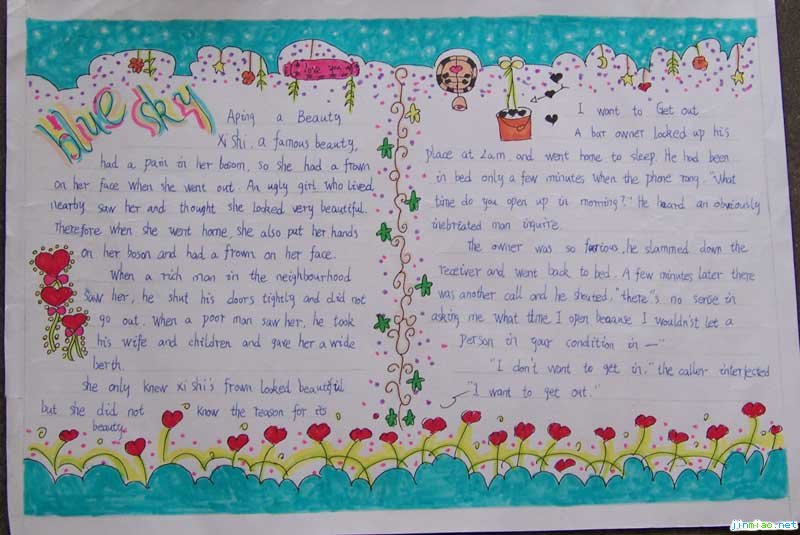 blue sky
I love you
Aping a Beauty
Xi shi, a famous beauty,
had a pain in her bosom, so she had a frown
on her face when she went out. An ugly girl who lived
nearby saw her and thought she looked very beautiful.
Therefore when she went home, she also put her hands
on her boson and had a frown on her face.
When a rich man in the neighbourhood
saw her, he shut his doors tightly and did not
go out. when a poor man saw her, he took
his wife and children and gave her a wide
berth.
She only knew xi shi's frown looked beautiful
but she did not know the reason for its
beauty.
I want to Get out
A bar owner locked up his
place at 2am and went home to sleep. He had been
in bed only a few minutes when the phone rang. "What
time do you open up in morning?" He heard an obviously
inebriated man inquire.
The owner was so furious, he slammed down the
receiver and went back to bed. A few minutes later there
was another call and he shouted, "there"s no sense in
asking me what time I open because I wouldn'st let a
person in your condition in —"
"I don't want to get in," the caller interjected
"I want to get out."
jinmiao.net